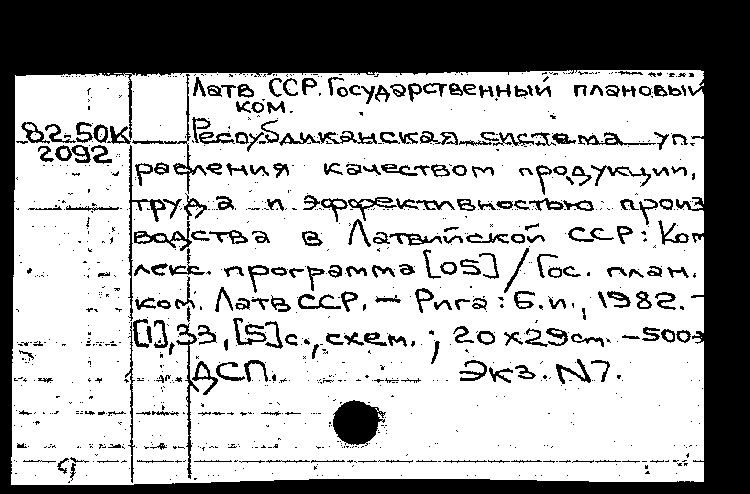 Латв ССР. Государственный плановый
ком.
82-50К
2092
Республиканская система уп-
равления качеством продукции,
труда и эффективностью произ
водства в Латвийской ССР: Ком
лекс. программа [05] / Гос. план.
ком. Латв ССР. — Рига: Б.и., 1982. -
[1], 33, [5] с., схем. ; 20 х 29 cm. - 500э
ДСП. Экз. N7.